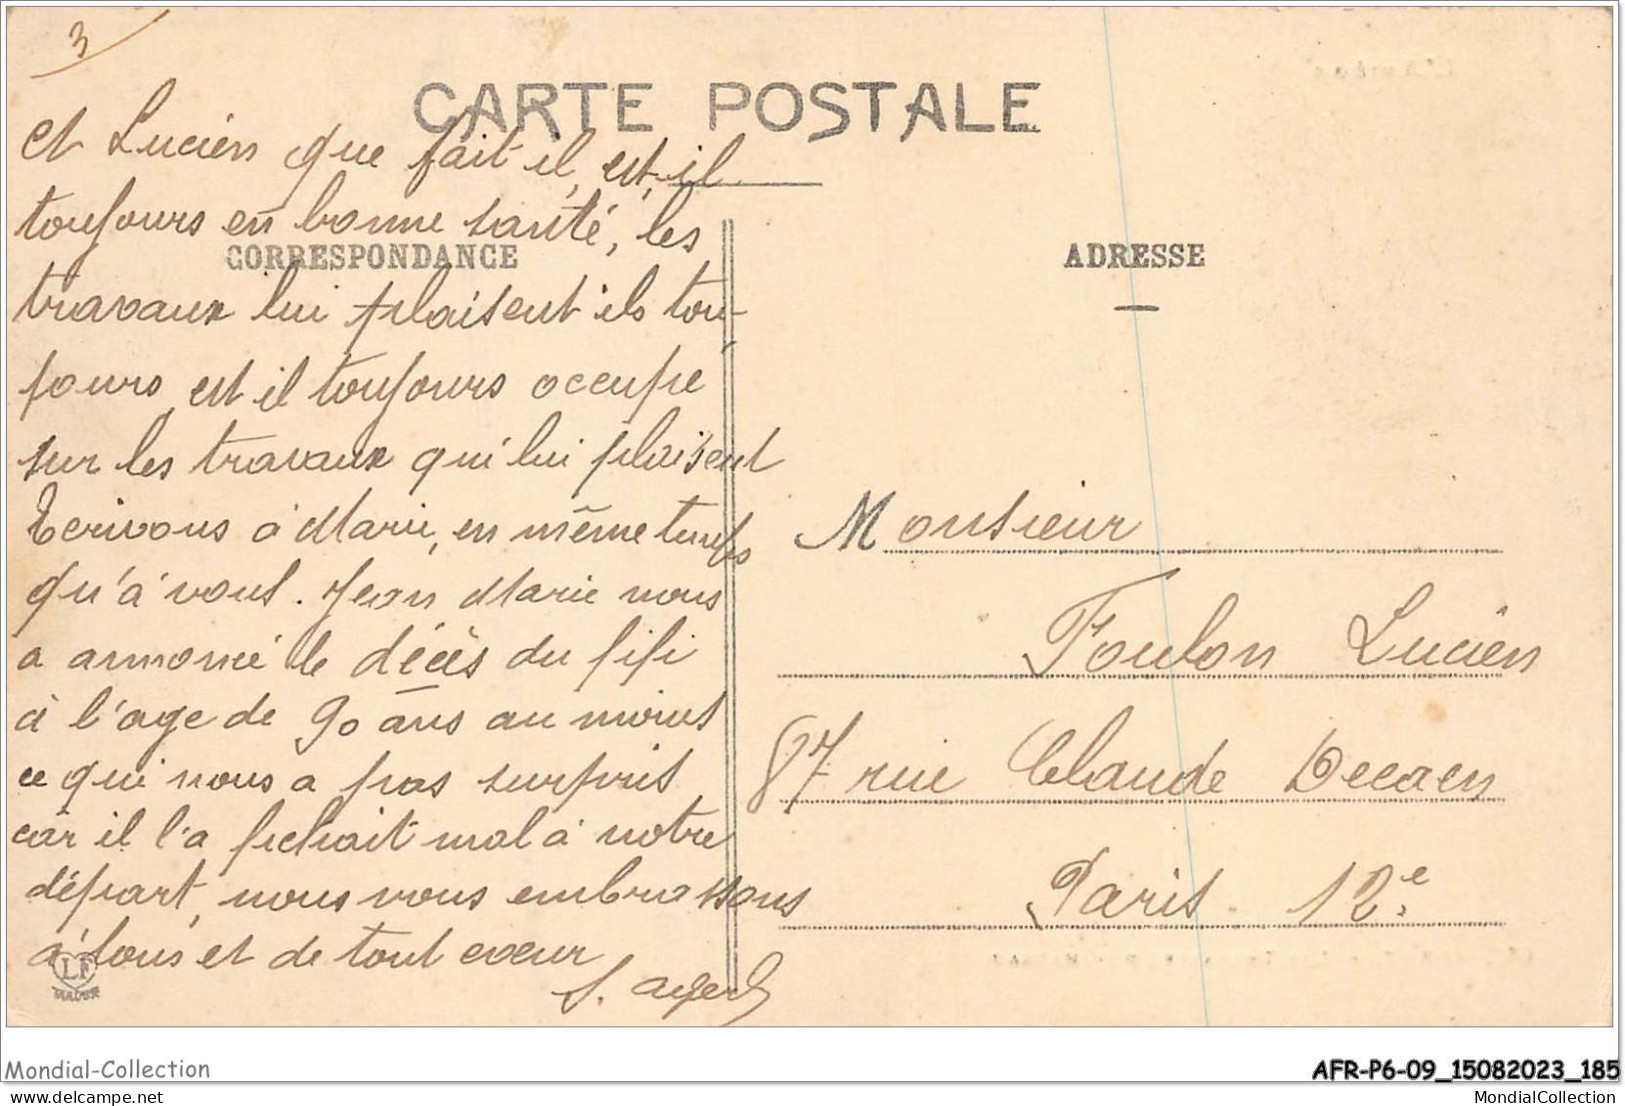 3
CARTE POSTALE
et Lucien que fait il, est, il
toujours en bonne santé, les
CORRESPONDANCE
travaux lui plaisent ils tou-
jours, est il toujours occupé
sur les travaux qui lui plaisent
Ecrivons à Marie, en même temps
qu'à vous. Jean Marie nous
a annoncé le décès du fifi
à l'age de 90 ans au moins
ce qui nous a pas surpris
car il l'a fichait mal à notre
départ, nous vous embrassons
à tous et de tout coeur
LF
S.
ADRESSE
Monsieur
Foulon Lucien
87 rue Claude Decaen
Paris - 12e.
Mondial-Collection
AFR-P6-09_15082023_185
MondialCollection.com
MondialCollection